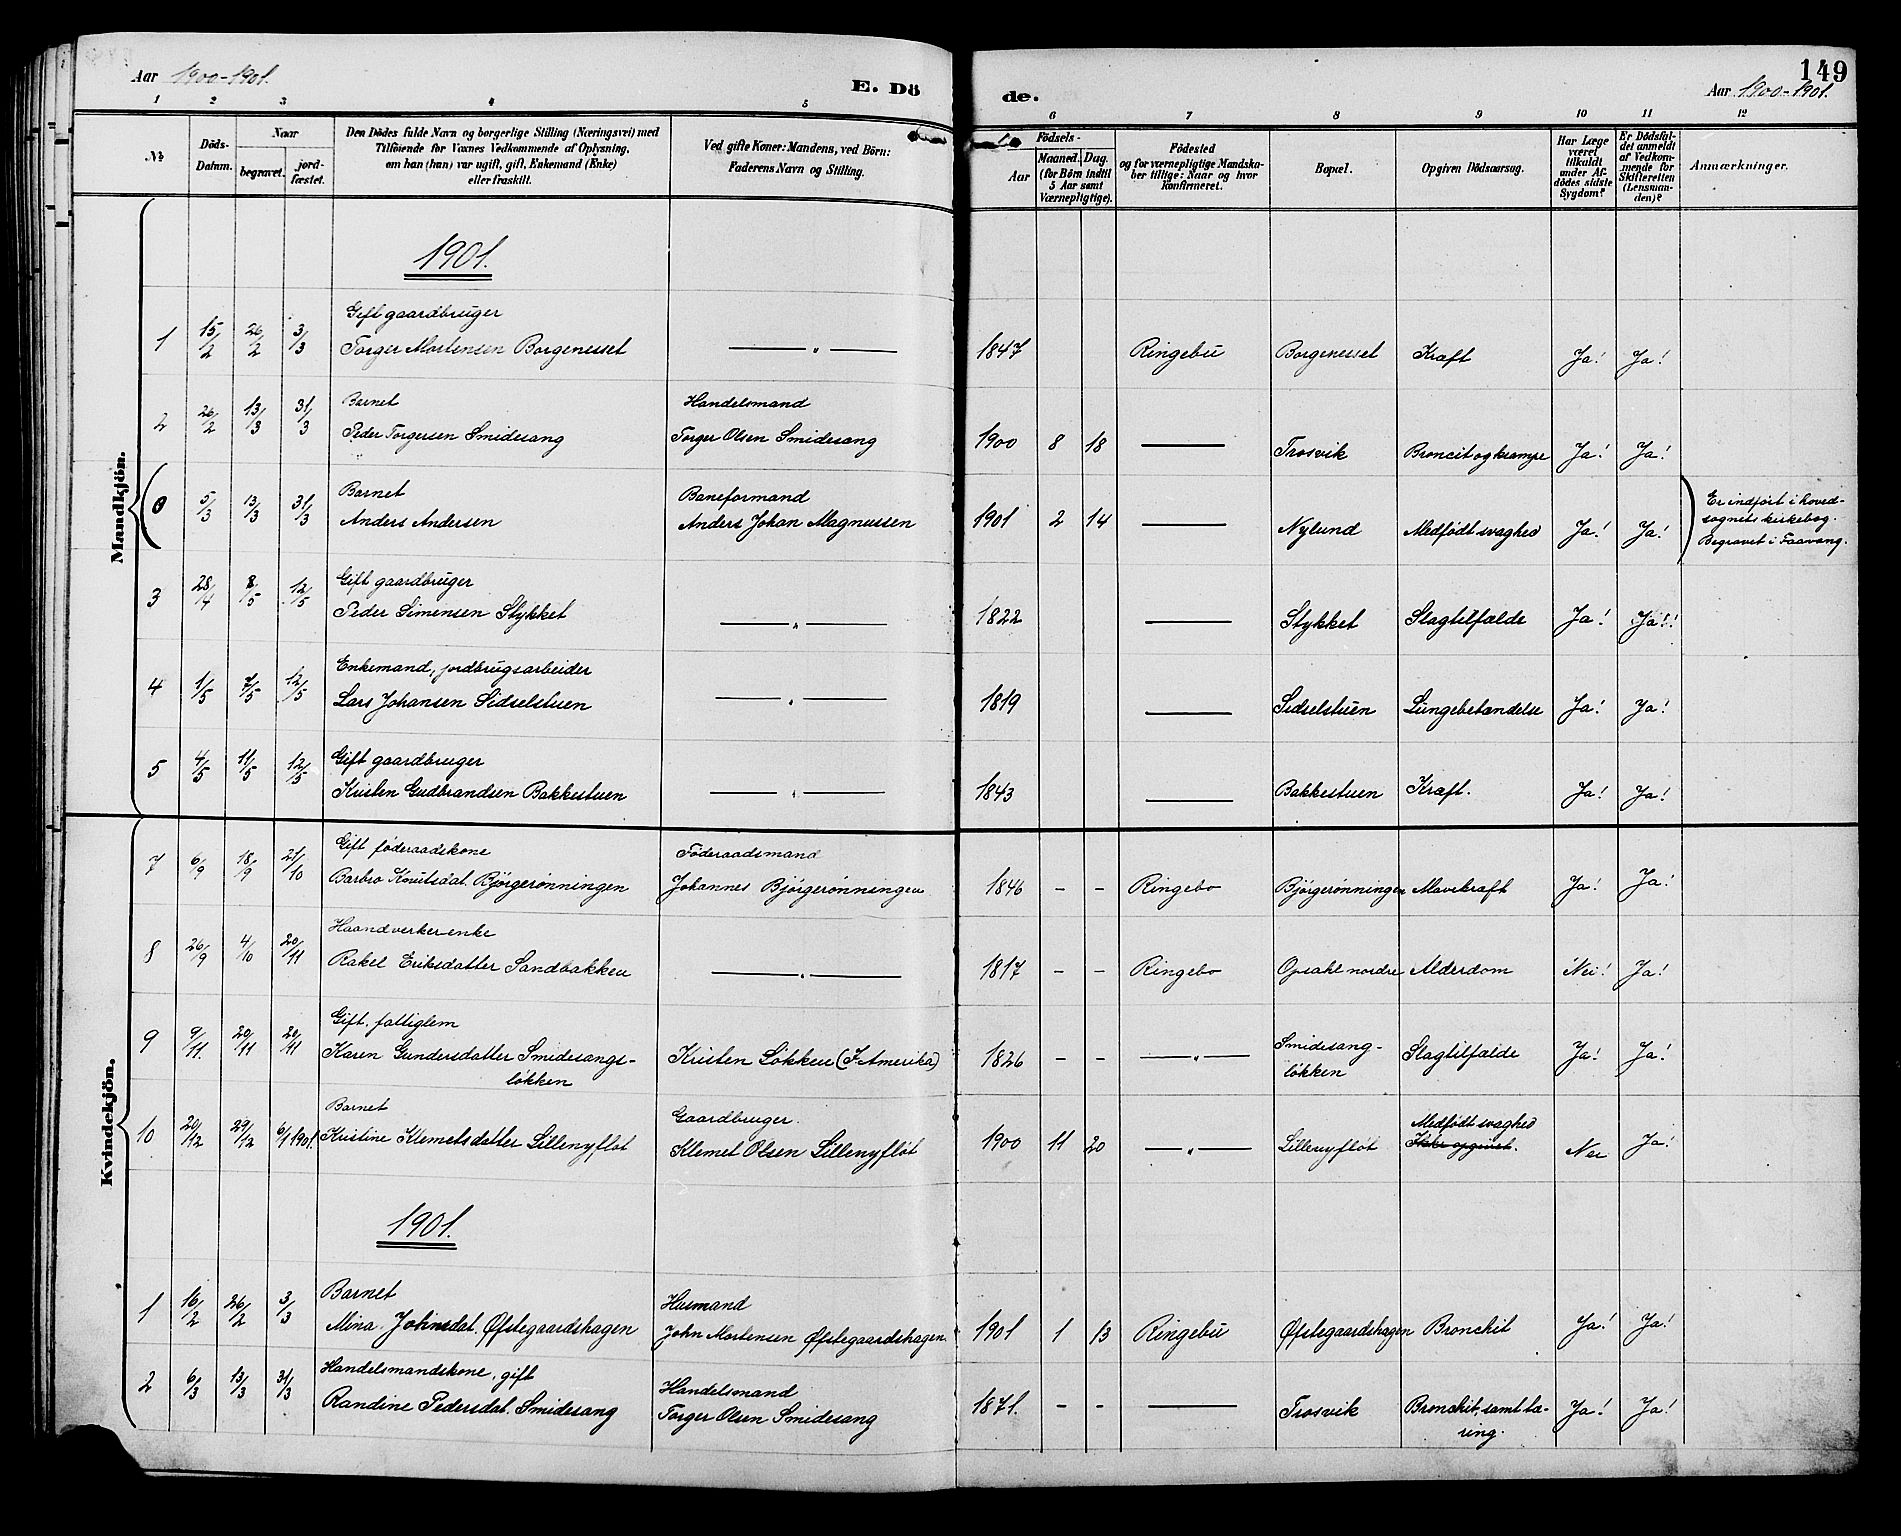 Aar 1900-1901.
E. Dö
de.
149
Aar 1900-1901.
1 2 3 4 5 6 7 8 9 10 11 12
No.
Döds-Datum.
Naar
begravet.
jord-fæstet.
Den Dödes fulde Navn og borgerlige Stilling (Næringsvei) med
Tilföiende for Voxnes Vedkommende af Oplysning,
om han (hun) var ugift, gift, Enkemand (Enke)
eller fraskilt.
Ved gifte Koner: Mandens, ved Börn:
Faderens Navn og Stilling.
Födsels-
Aar
Maaned. Dag.
(for Börn indtil
5 Aar samt
Værnepligtige).
Födested
og for værnepligtige Mandska-
ber tillige: Naar og hvor
Konfirmeret.
Bopæl.
Opgiven Dödsaarsag.
Har Læge
været
tilkaldt
under Af-
dödes sidste
Sygdom?
Er Dödsfal-
det anmeldt
af Vedkom-
mende for
Skifteretten
(Lensman-
den)?
Anmærkninger.
Mandkjön.
1901.
Gift gaardbruger
1 15/2 26/2 3/3 Torger Mortensen Borgenesset — " — 1847 Ringebu Borgenesset Kræft Ja! Ja!
Barnet Handelsmand
2 26/2 13/3 31/3 Peder Torgersen Smidesang Torger Olsen Smidesang 1900 8 18 — Trosvik Broncit og krampe Ja! Ja!
Barnet Baneformand
(0 5/3 13/3 31/3 Anders Andersen Anders Johan Magnussen 1901 2 14 — Nylund Medfödt svaghed Ja! Ja!
Er indført i hoved-
sognets kirkebog.
Begravet i Faavang.
Gift gaardbruger
3 28/4 8/5 12/5 Peder Simensen Stykket — " — 1822 — Stykket Slagtilfælde Ja! Ja!
Enkemand, jordbrugsarbeider
4 1/5 7/5 12/5 Lars Johansen Sidselstuen — " — 1819 — Sidselstuen Lungebetændelse Ja! Ja!
Gift gaardbruger
5 4/5 11/5 12/5 Kristen Gudbrandsen Bakkestuen — " — 1843 — Bakkestuen Kræft. Ja! Ja!
Kvindekjön.
Gift föderaadskone Föderaadsmand
7 6/9 18/9 21/10 Barbro Knutsdat. Bjørgerønningen Johannes Bjørgerønningen 1846 - - Ringebo Bjørgerønningen Mavekræft Ja! Ja!
Haandverkerenke
8 26/9 4/10 20/11 Rakel Eriksdatter Sandbakken — " — 1817 - - Ringebo Opsahl nordre Alderdom Nei! Ja!
Gift, fattiglem
9 9/11 20/11 20/11 Karen Gundersdatter Smidesangs-
løkken Kristen Løkken (I Amerika) 1826 - - — " — Smidesang-
løkken Slagtilfælde Ja! Ja!
Barnet Gaardbruger.
10 20/12 29/12 6/1 1901. Kristine Klemetsdatter Lillenyfløt Klemet Olsen Lillenyfløt 1900 11 20 — " — Lillenyfløt Medfödt svaghed
Ikke opgivet. Nei Ja!
1901.
Barnet Husmand
1 16/2 26/2 3/3 Mina Johnsdat. Øfstegaardshagen John Mortensen Øfstegaardshagen. 1901 1 13 Ringebu Øfstegaardshagen Bronchit Ja! Ja!
Handelsmandskone, gift Handelsmand
2 6/3 13/3 31/3 Randine Pedersdat. Smidesang Torger Olsen Smidesang 1871. - - — Trosvik Bronchit, samt tæ-
ring. Ja! Ja!